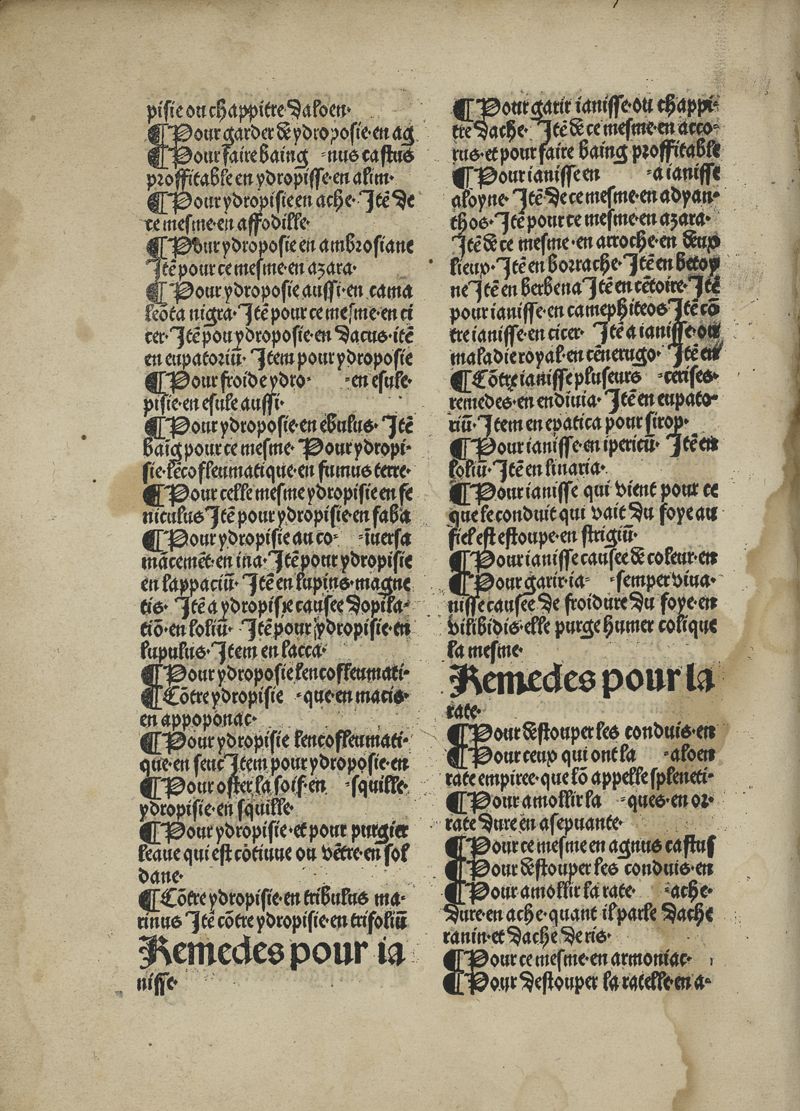 pisie ou chappitre daloen·
¶ Pour garder de ydroposie·en ag
¶ Pour faire baing ‑nus castus
proffitable en ydropisse·en alim·
¶ Pour ydropisie en ache· Itē de
ce mesme·en affodille·
¶ Pour ydroposie en ambrosiane
Itē pour ce mesme·en azara·
¶ Pour ydroposie aussi·en cama
leōta nigra· Itē pour ce mesme·en ci
cer· Itē pou ydroposie·en dacus·itē
en eupatoriū· Item pour ydroposie
¶ Pour froide ydro· en esule·
pisie·en esule aussi·
¶ Pour ydroposie·en ebulus· Itē
baig pour ce mesme· Pour ydropi‑
sie·lēcofleumatique·en fumus terre·
¶ Pour celle mesme ydropisie en fe
niculus Itē pour ydropisie·en faba
¶ Pour ydropisie au co‑ ‑iuersa
mācemēt·en ina· Itē pour ydropisie
en lappaciū· Itē en lupins·magne
tis· Itē a ydropisie causee dopila‑
tiō·en loliū· Itē pour ydropisie·en
lupulus· Item en lacca·
¶ Pour ydroposie lencofleumati·
¶ Cōtre ydropisie ‑que·en macis·
en appoponac·
¶ Pour ydropisie lencofleumati·
que·en seuc Item pour ydroposie·en
¶ Pour oster la soif·en ‑squille
ydropisie·en squille·
¶ Pour ydropisie·et pour purgier
leaue qui est cōtinue ou vētre·en sol
dane·
¶ Cōtre ydropisie·en tribulus ma‑
rinus Itē cōtre ydropisie·en trifoliū
Remedes pour ia
nisse·
¶ Pour garir ianisse·ou chappi‑
tre dache· Itē de ce mesme·en acco‑
rus·et pour faire baing proffitable
¶ Pour ianisse en a ianisse
aloyne· Itē de ce mesme·en adyan‑
thos· Itē pour ce mesme·en azara·
Itē de ce mesme·en arroche·en deup
lieup· Itē en borrache· Itē en betoy
ne Itē en berbena Itē en cētoire· Itē
pour ianisse·en camephiteos Itē cō
tre ianisse·en cicer· Itē a ianisse·ou
maladie royal·en cēnerugo· Itē en
¶ Cōtre ianisse pluseurs ‑cerises·
remedes·en endiuia· Itē en eupato‑
riū· Item en epatica pour sirop·
¶ Pour ianisse·en ipericū· Itē en
loliū· Itē en linaria·
¶ Pour ianisse qui vient pour ce
que le conduit qui vait du foye au
fiel est estoupe·en strigiū·
¶ Pour ianisse causee de coleur·en
¶ Pour garir·ia‑ ‑semper viua·
nisse causee de froidure du foye·en
vilibidis·elle purge humer colique
la mesme·
Remedes pour la
rate·
¶ Pour destouper les conduis·en
¶ Pour ceup qui ont la ‑aloen
rate empiree que lō appelle spleneti‑
¶ Pour amollir la ‑ques·en or·
rate dure en asepuante·
¶ Pour ce mesme en agnus castus
¶ Pour destouper les conduis·en
¶ Pour amollir la rate ‑ache·
dure·en ache·quant il parle dache
ranin·et dache de ris·
¶ Pour ce mesme·en armoniac·
¶ Pour destouper la ratelle·en a‑